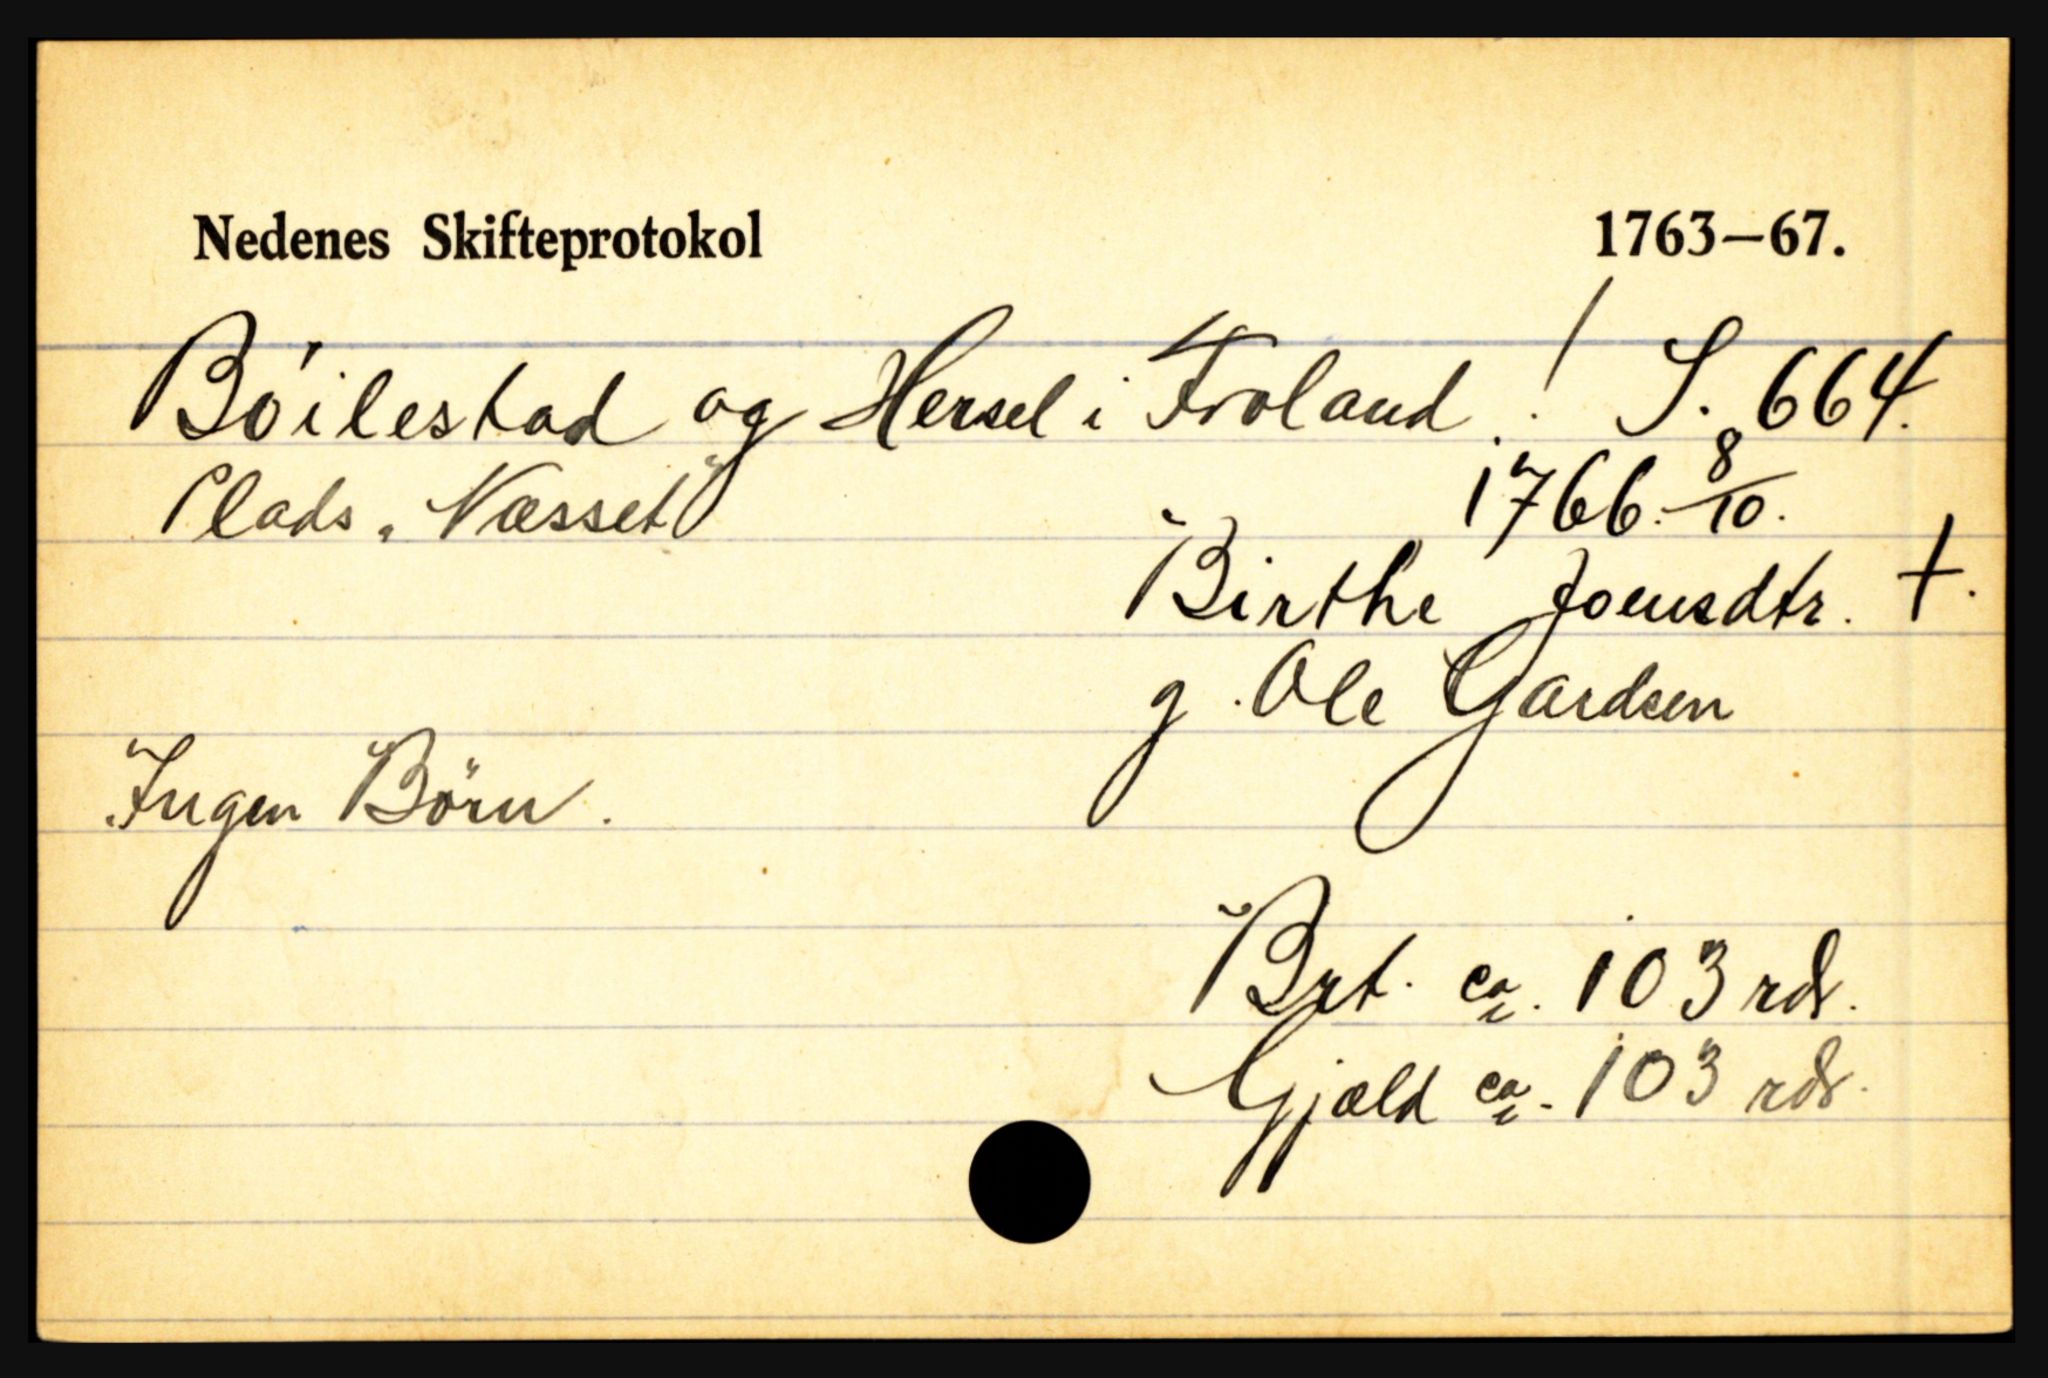 Nedenes Skifteprotokol 1763—67.
Böilestad og Hersel i Froland. ! S. 664.
Plads „Næsset" 1766. 8/10.
Birthe Joensdtr. †.
g. Ole Gardsen
Ingen Börn.
Brt. ca. 103 rdr.
Gjæld ca. 103 rdr.